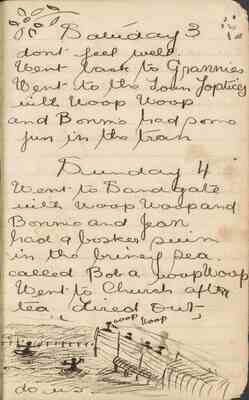 Saturday 3
dont feel well.
Went back to Grannies
Went to the Town
with Woop Woop
and Bonnie had some
fun in the train
Sunday 4
Went to Sandgate
with Woop Woop and
Bonnie and Jean
had a bosker swim
in the briney sea.
called Bob a Woop Woop
Went to Church after
tea. Tired out
Woop Woop
do us.